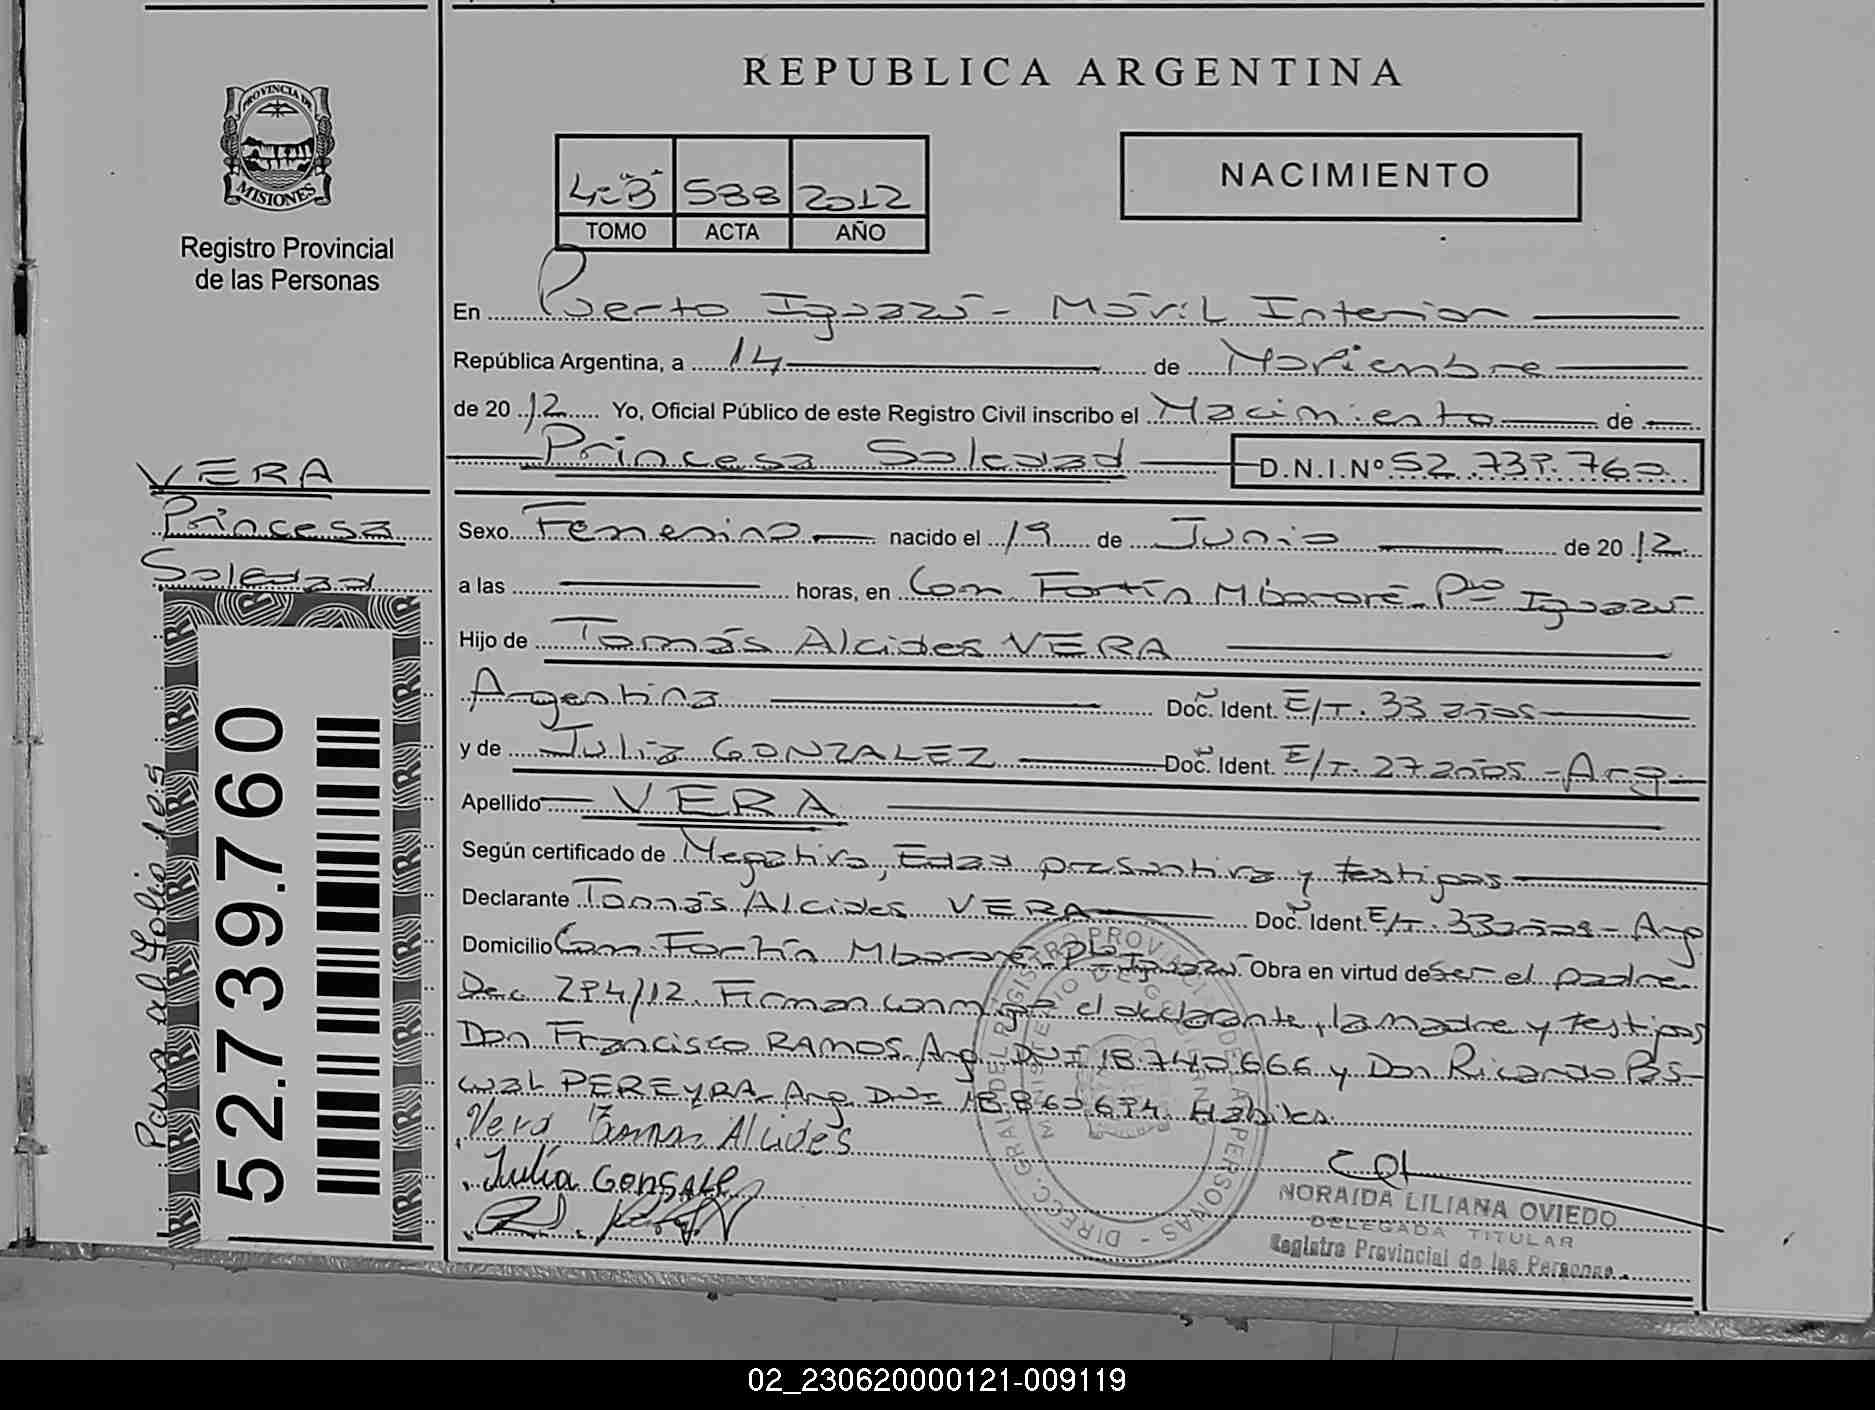 REPUBLICA ARGENTINA
PROVINCIA DE
MISIONES
Registro Provincial
de las Personas
4º "B" 588 2012
TOMO ACTA AÑO
NACIMIENTO
En Puerto Iguazú - Móvil Interior
República Argentina, a 14 de Noviembre
de 2012 Yo, Oficial Público de este Registro Civil inscribo el Nacimiento de
Princesa Soledad D.N.I.Nº 52.739.760
VERA
Princesa
Soledad
Sexo Femenino nacido el 19 de Junio de 2012
a las horas, en Com. Fortín Mbororé - Pto Iguazú
Hijo de Tomás Alcides VERA
Argentina Doc. Ident. E/T. 33 años
y de Julia GONZALEZ Doc. Ident. E/T. 27 años - Arg.
Apellido VERA
Según certificado de Negativo, Edad presuntiva y testigos
Declarante Tomás Alcides VERA Doc. Ident. E/T. 33 años - Arg
Domicilio Com. Fortín Mbororé - Pto Iguazú Obra en virtud de ser el padre
Dec. 294/12. Firman conmigo el declarante, la madre y testigos
Don Francisco RAMOS. Arg. DNI 18.740.666 y Don Ricardo Pas-
cual PEREYRA - Arg. DNI 18.860.694. Hábiles.
Vera Tomas Alcides
Julia GONSALE
NORAIDA LILIANA OVIEDO
DELEGADA TITULAR
Registro Provincial de las Personas
Pasa al folio 185
52.739.760
02_230620000121-009119